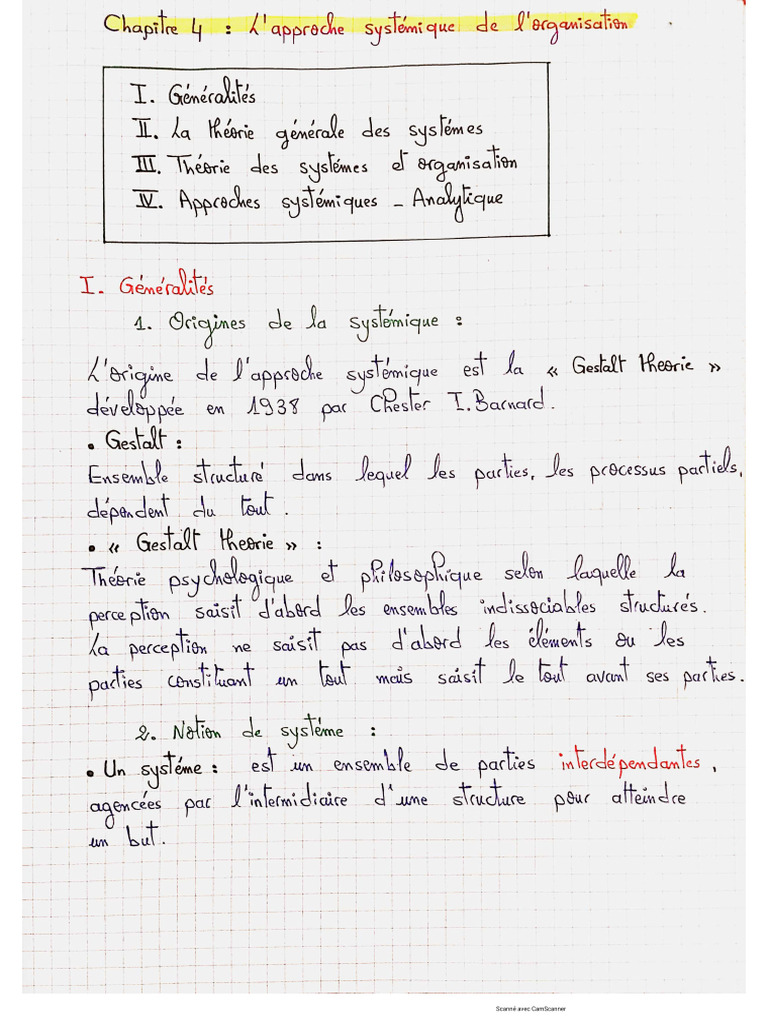 Chapitre 4 : L'approche systémique de l'organisation
I. Généralités
II. La théorie générale des systémes
III. Théorie des systémes et organisation
IV. Approches systémiques _ Analytique
I. Généralités
1. Origines de la systémique :
L'origine de l'approche systémique est la « Gestalt theorie »
développée en 1938 par Chester I.Barnard.
• Gestalt :
Ensemble structuré dans lequel les parties, les processus partiels,
dépendent du tout.
• « Gestalt theorie » :
Théorie psychologique et philosophique selon laquelle la
perception saisit d'abord les ensembles indissociables structurés.
La perception ne saisit pas d'abord les éléments ou les
parties constituant un tout mais saisit le tout avant ses parties.
2. Notion de systéme :
• Un systéme : est un ensemble de parties interdépendantes,
agencées par l'intermidiaire d'une structure pour atteindre
un but.
Scanné avec CamScanner